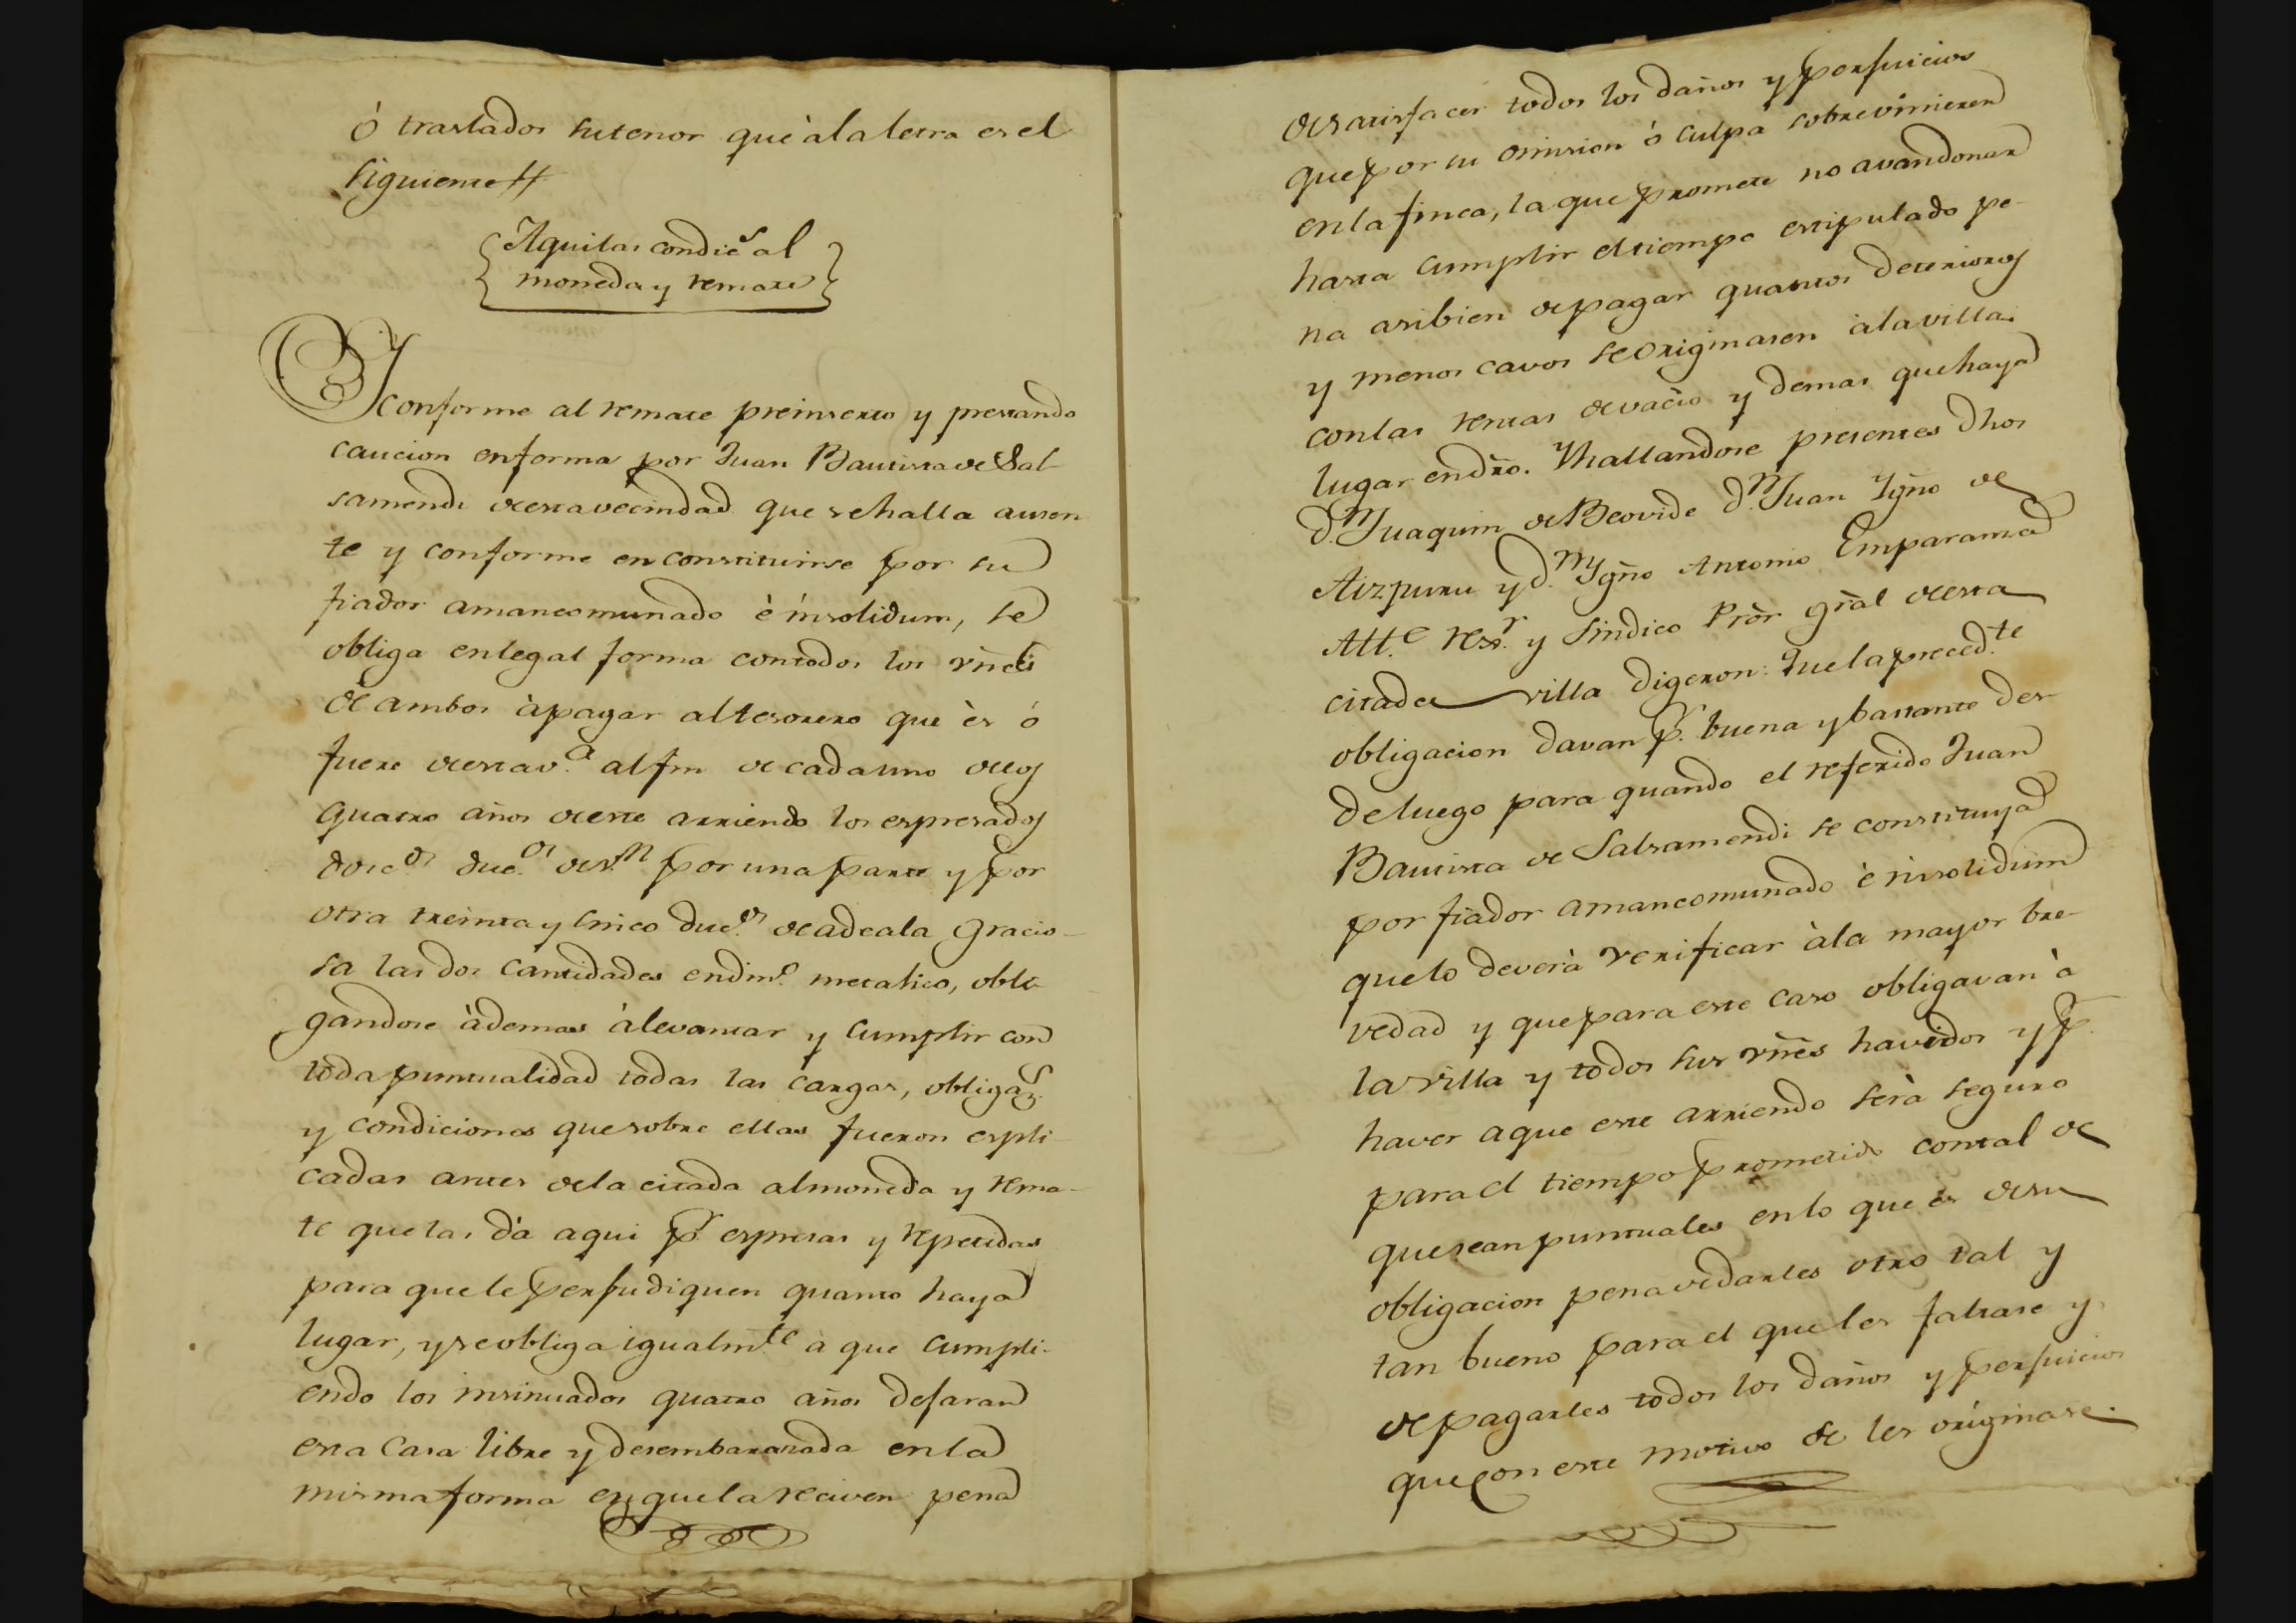 ó traslados su tenor que à la letra es el
siguiente //
{Aqui las condic.s al
moneda y remate}
Y conforme al remate preinserto y prestando
caucion en forma por Juan Bautista de Sal-
samendi de esta vecindad que se halla ausen
te y conforme en constituirse por su
fiador amancomunado è insolidum, se
obliga en legal forma con todos los vñes
de ambos à pagar al tesorero que ès ó
fuere de esta v.a al fin de cada uno de los
quatro años de este arriendo los espresados
dosc.os duc.os de v.n por una parte y por
otra treinta y cinco duc.s de adeala gracio-
sa las dos cantidades en din.o metalico, obli-
gandose àdemas à levantar y cumplir con
toda puntualidad todas las cargas, obligaz.s
y condiciones que sobre ellas fueron espli-
cadas antes de la citada almoneda y rema-
te que las dà aqui p.r espresas y repetidas
para que le perjudiquen quanto haya
lugar, y se obliga igualm.te a que cumpli-
endo los insinuados quatro años dejaran
esta Casa libre y desembarazada en la
misma forma en que la reciven pena
de satisfacer todos los daños y perjuicios
que por su omision ó culpa sobrevinieren
en la finca, la que promete no avandonar
hasta cumplir el tiempo estipulado pe-
na asibien de pagar quantos deterioros
y menos cavos se originasen à la villa
con las rentas de vacio y demas que haya
lugar en dr̃o. Y hallandose presentes dhos
d.n Juaquin de Beovide d.n Juan Ygñο de
Aizpuru y d.n Ygño Antonio Emparanza
Alt.e res.r y Sindico Prõr grãl de esta
citada villa digeron: Que la preced.te
obligacion davan p.r buena y bastante des-
de luego para quando el referido Juan
Bautista de Salsamendi se constituya
por fiador amancomunado è insolidum
que lo deverà verificar à la mayor bre-
vedad y que para este caso obligavan à
la villa y todos sus vñes havidos y p.r
haver a que este arriendo serà seguro
para el tiempo prometido con tal de
que sean puntuales en lo que ès de su
obligacion pena de darles otro tal y
tan bueno para el que les faltase y
de pagarles todos los daños y perjuicios
que con este motivo se les originase.